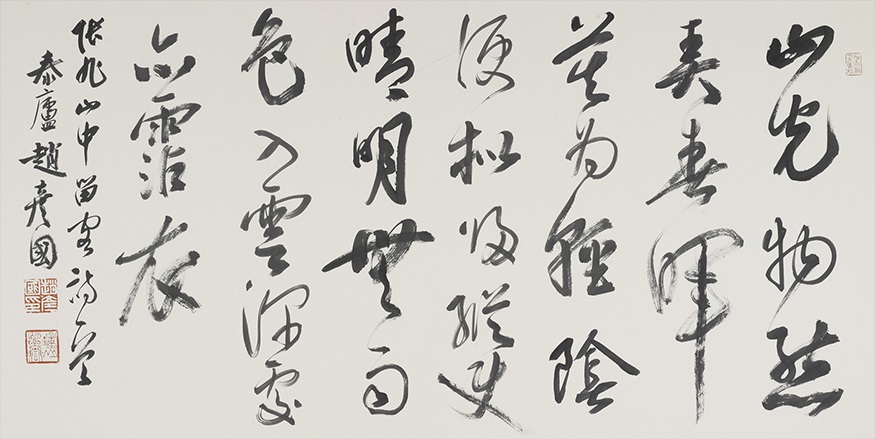 山光物態
弄春暉
莫为輕陰
便拟歸縱使
晴明無雨
色入雲深處
亦霑衣
張旭山中留客詩一首
泰廬趙彦國